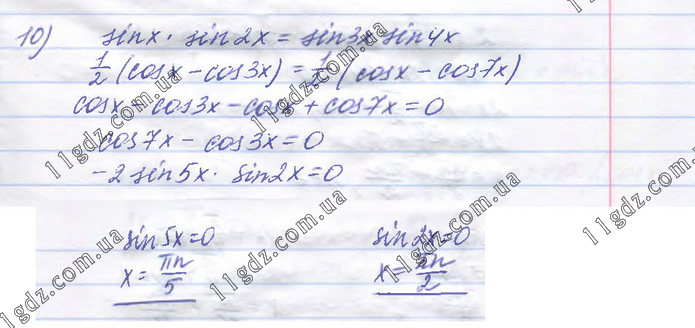 10) sinx · sin2x = sin3x sin4x
1/2 (cosx − cos3x) = 1/2 (cosx − cos7x)
cosx − cos3x − cosx + cos7x = 0
cos7x − cos3x = 0
−2 sin5x · sin2x = 0
sin5x = 0
x = πn/5
sin2x = 0
x = πn/2
11gdz.com.ua
11gdz.com.ua
11gdz.com.ua
11gdz.com.ua
11gdz.com.ua
11gdz.com.ua